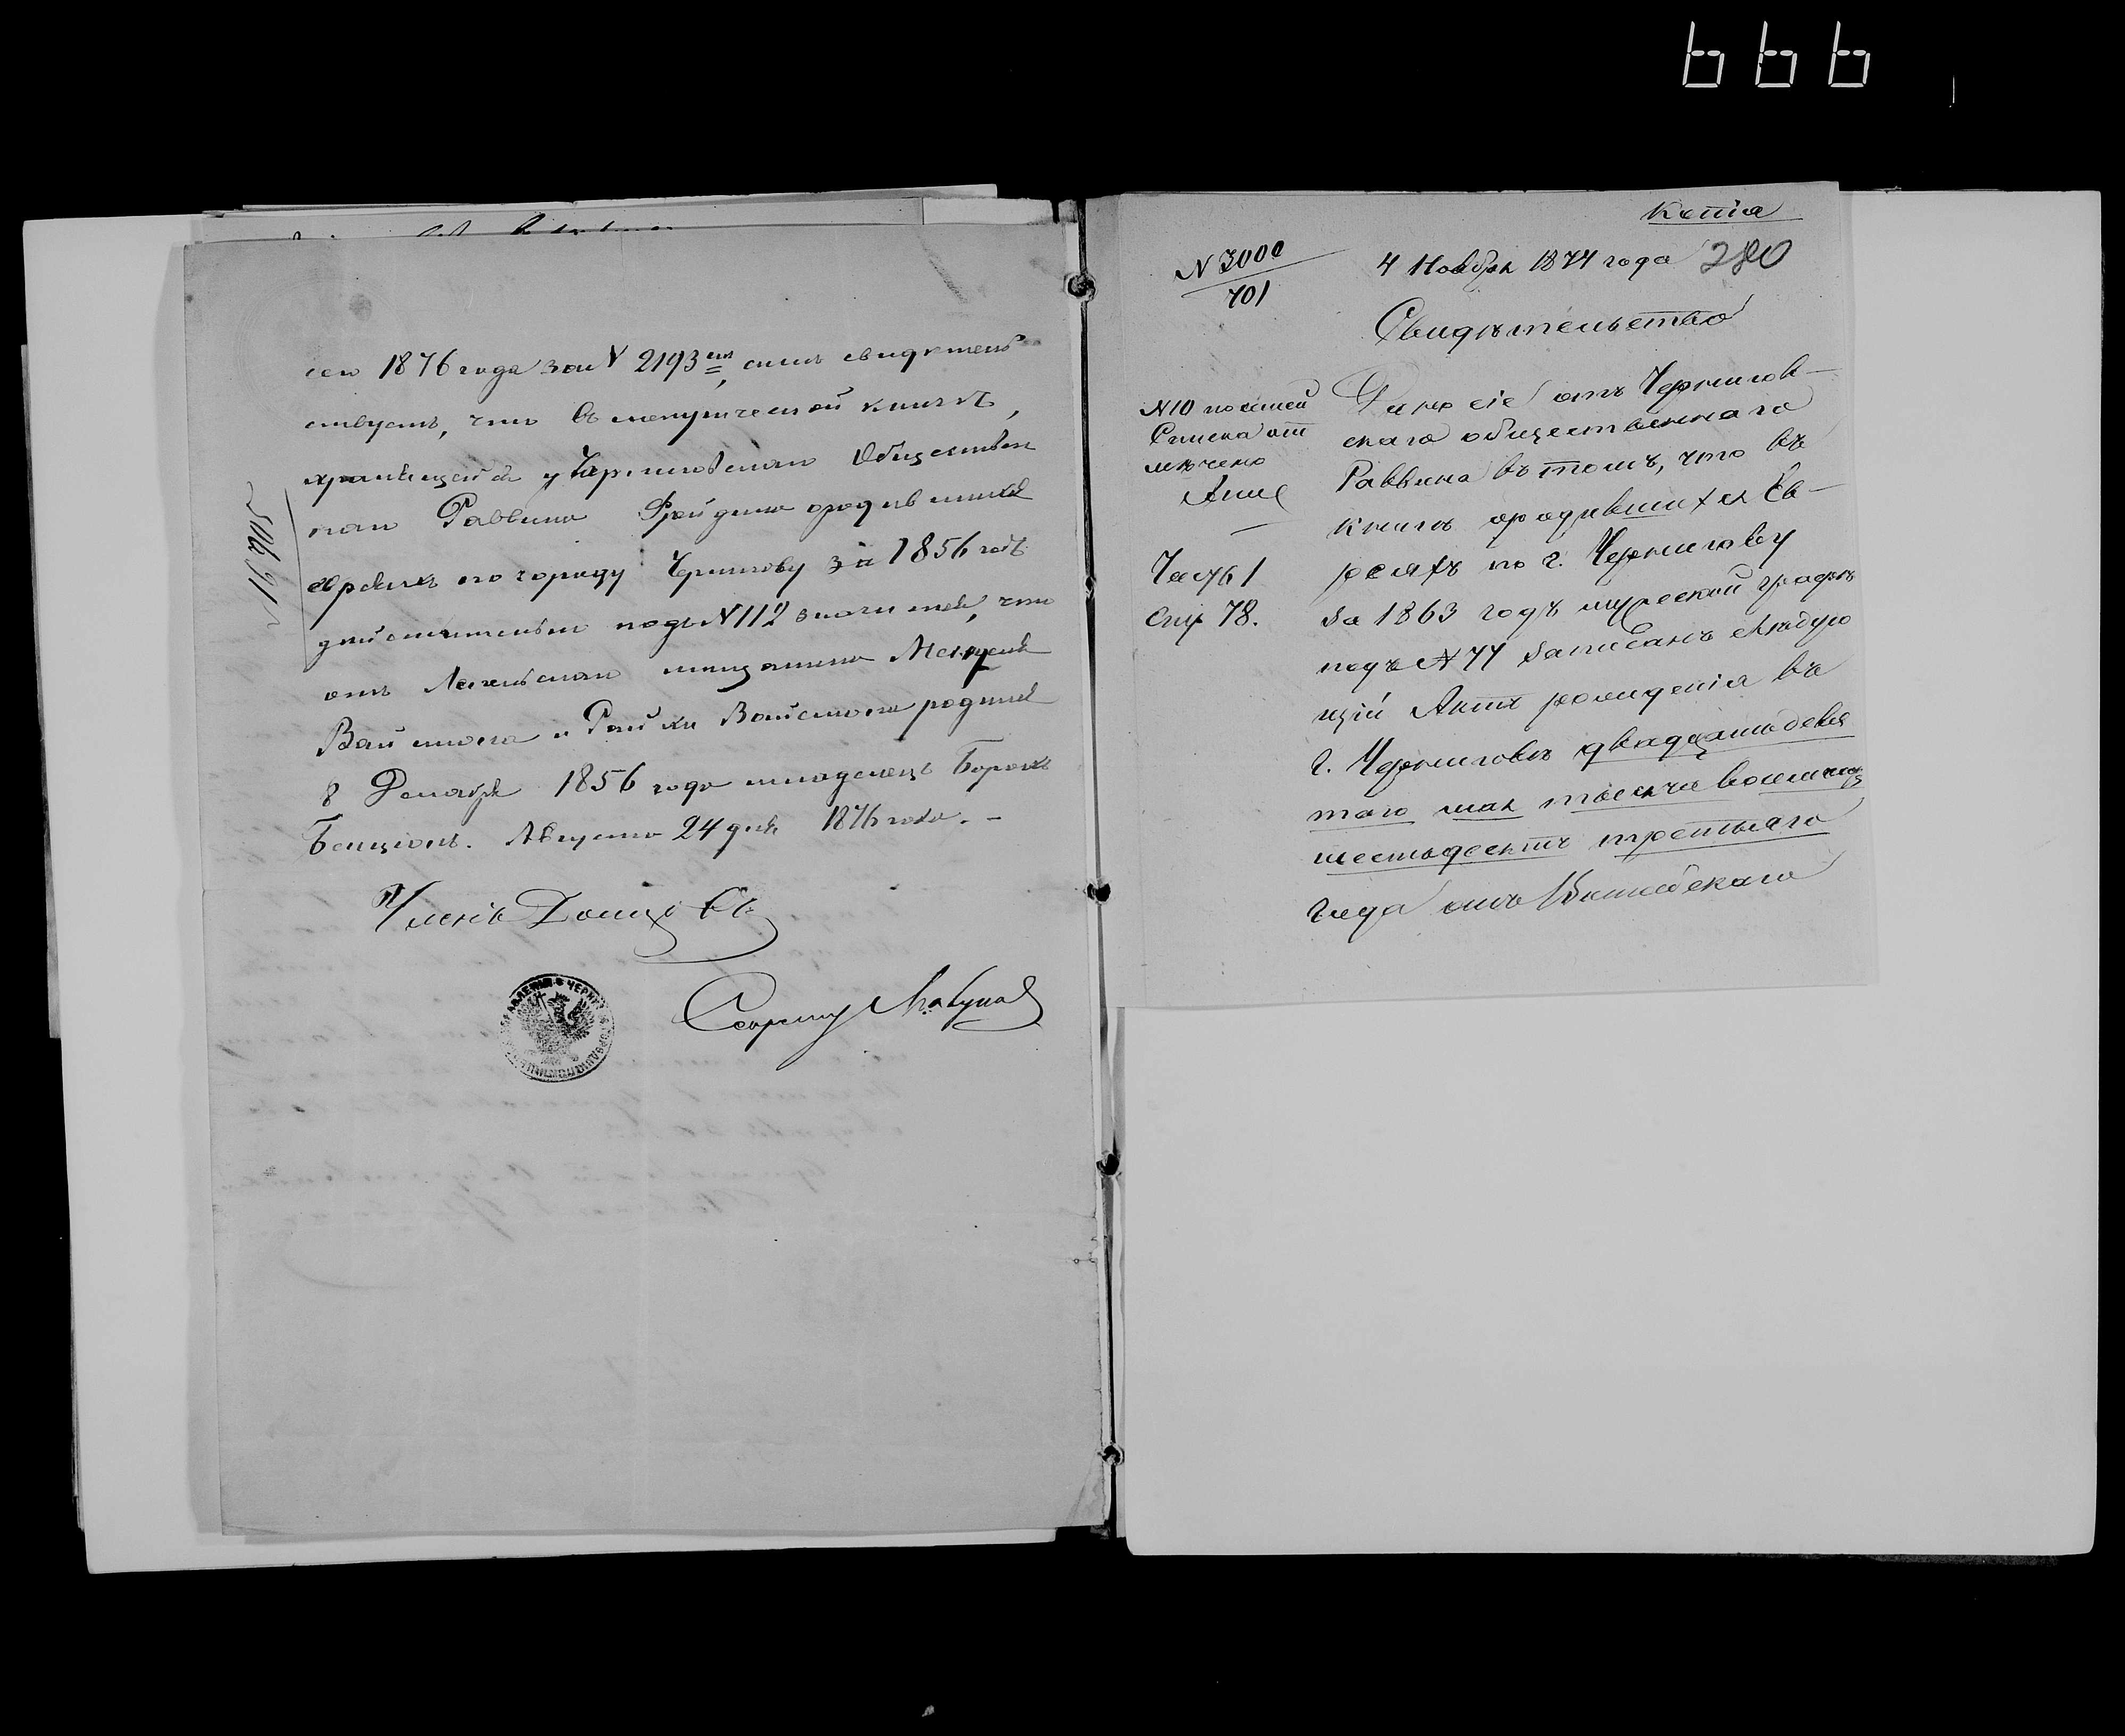 666
сего 1876 года за N 2193ит, симъ свидетель
ствуетъ, что въ метрической книгѣ,
хранящейся у Черниговскаго Обществен
наго Раввина Фрайдина о родившихся
евреяхъ по городу Чернигову за 1856 годъ
действительно подъ N 112 значится, что
отъ мещанина
Вайнштока и Райхи Вайнштока родился
8 Декабря 1856 года младенецъ Борохъ
Бенціонъ. Августа 24 дня 1876 года. –
Членъ
Секретарь
N 5061905
Копія
N 3000
701
4 Ноября 1874 года 280
Свидѣтельство
N10 по сей
Списка от
мѣчено
Часть 1
Стр 78.
Дано сіе отъ Чернигов–
скаго общественнаго
Раввина въ томъ, что въ
книгѣ о родившихся Ев–
реяхъ по г. Чернигову
за 1863 годъ мужеской графѣ
подъ N 77 записанъ слѣдую
щій Актъ рожденія въ
г. Черниговѣ двадцатьдевя
таго мая тысяча восемьсотъ
шестьдесятъ третьяго
года отъ